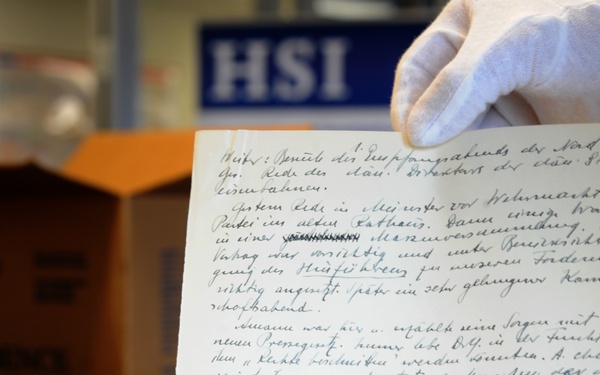 HSI
Weiter: Besuch des Empfangsabends der Nord
Ges. Rede des dän. Direktors der dän. S
eisenbahnen.
Gestern Rede in Münster vor Wehrmacht
Partei im alten Rathaus. Dann einige
in einer Massenversammlung.
Vortrag war vorsichtig und unter Berücksicht
gung des Hinführens zu unseren Fordern
richtig angesetzt. Später ein sehr gelungener Kam
schaftsabend.
Amann war hier u. erzählte seine Sorgen mit
neuen Pressegesetz. Immer lebe Dr. G. in der Furcht
dem „Rechte beschnitten" werden könnten. A.